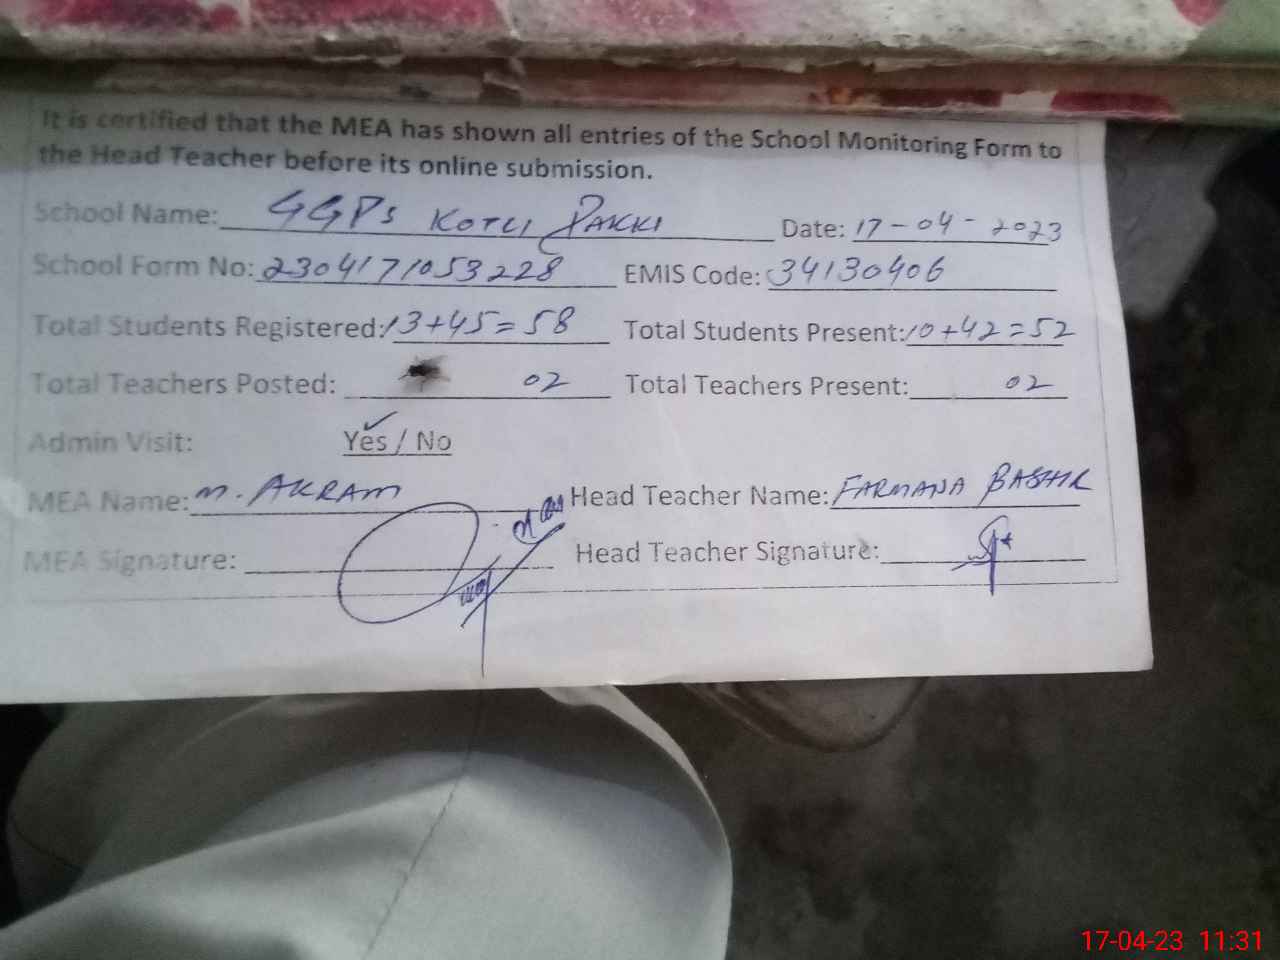 It is certified that the MEA has shown all entries of the School Monitoring Form to
the Head Teacher before its online submission.
School Name: GGPS KOTLI PAKKI Date: 17-04-2023
School Form No: 2304171053228 EMIS Code: 34130406
Total Students Registered: 13+45=58 Total Students Present: 10+42=52
Total Teachers Posted: 02 Total Teachers Present: 02
Admin Visit: Yes / No
MEA Name: M. AKRAM Head Teacher Name: FARMANA BASHIR
MEA Signature: Head Teacher Signature:
17-04-23 11:31